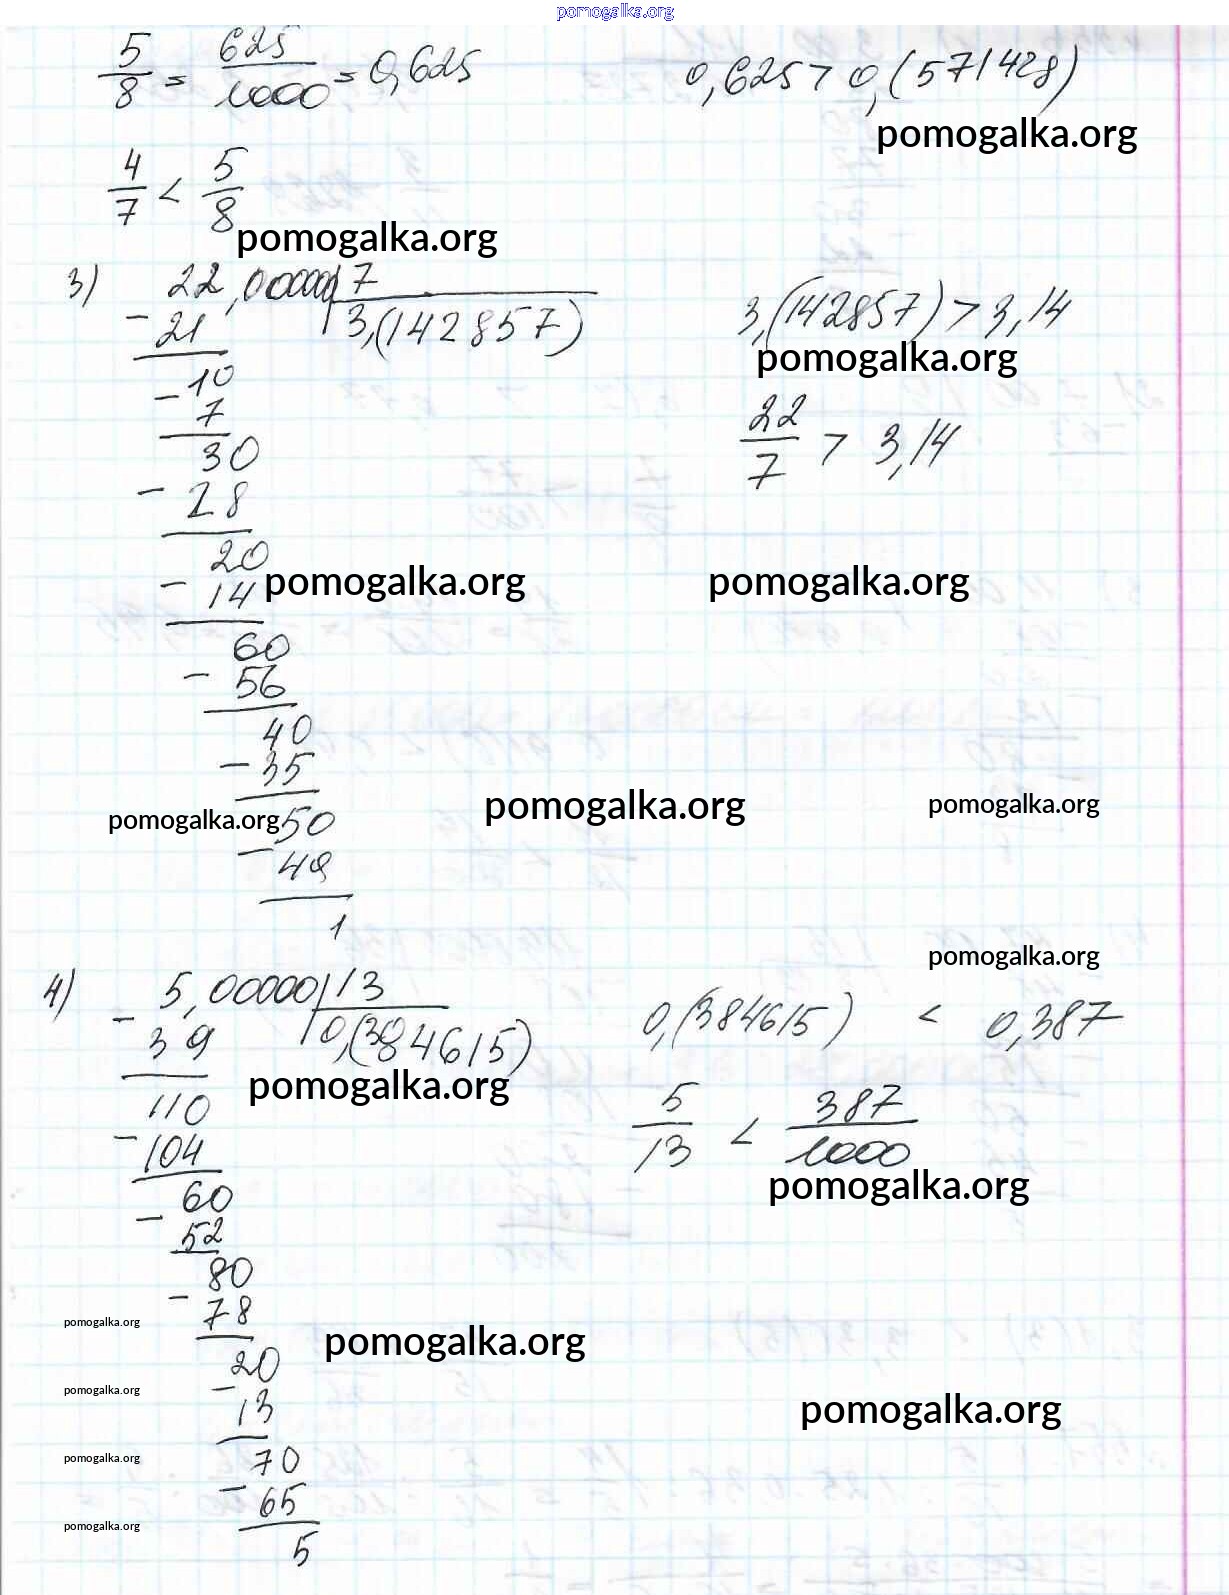 pomogalka.org
5/8 = 625/1000 = 0,625
0,625 > 0,(571428)
pomogalka.org
4/7 < 5/8
pomogalka.org
3) 22,00000 | 7
- 21 3,(142857)
- 10
7
30
- 28
20
- 14 pomogalka.org
60
- 56
40
- 35
pomogalka.org 50
- 49
1
3,(142857) > 3,14
pomogalka.org
22/7 > 3,14
pomogalka.org
pomogalka.org
pomogalka.org
pomogalka.org
4) 5,00000 | 13
- 39 0,(384615)
pomogalka.org
110
- 104
60
- 52
80
- 78
20
- 13
70
- 65
5
0,(384615) < 0,387
5/13 < 387/1000
pomogalka.org
pomogalka.org
pomogalka.org
pomogalka.org
pomogalka.org
pomogalka.org
pomogalka.org